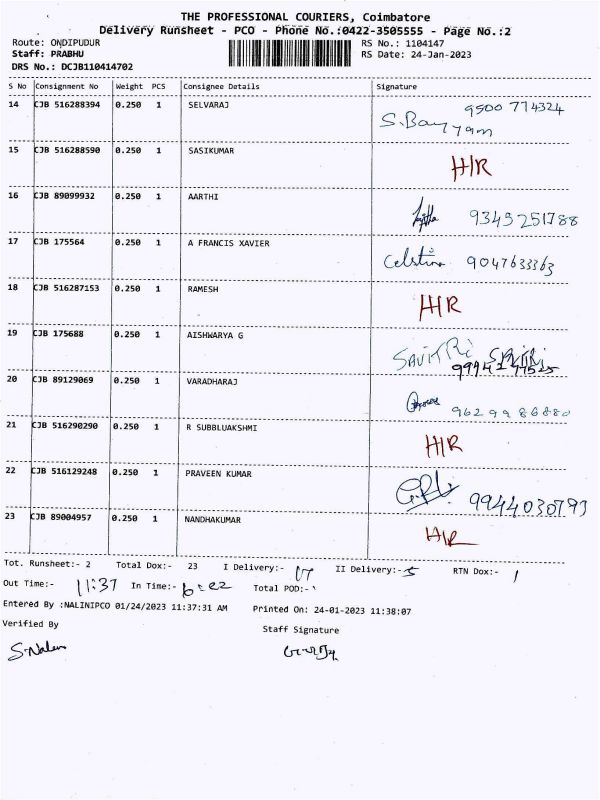 THE PROFESSIONAL COURIERS, Coimbatore
Delivery Runsheet - PCO - Phone No.:0422-3505555 - Page No.:2
Route: ONDIPUDUR RS No.: 1104147
Staff: PRABHU RS Date: 24-Jan-2023
DRS No.: DCJB110414702
S No Consignment No Weight PCS Consignee Details Signature
14 CJB 516288394 0.250 1 SELVARAJ 9500 774324
15 CJB 516288590 0.250 1 SASIKUMAR H/R
16 CJB 89099932 0.250 1 AARTHI 9345251788
17 CJB 175564 0.250 1 A FRANCIS XAVIER 9047633363
18 CJB 516287153 0.250 1 RAMESH H/R
19 CJB 175688 0.250 1 AISHWARYA G SAVITRI
20 CJB 89129069 0.250 1 VARADHARAJ 9629986880
21 CJB 516290290 0.250 1 R SUBBLUAKSHMI H/R
22 CJB 516129248 0.250 1 PRAVEEN KUMAR 9944030793
23 CJB 89004957 0.250 1 NANDHAKUMAR H/R
Tot. Runsheet:- 2 Total Dox:- 23 I Delivery:- 17 II Delivery:- 5 RTN Dox:- 1
Out Time:- 11:37 In Time:- 6:22 Total POD:-
Entered By :NALINIPCO 01/24/2023 11:37:31 AM Printed On: 24-01-2023 11:38:07
Verified By Staff Signature
S.Nalini